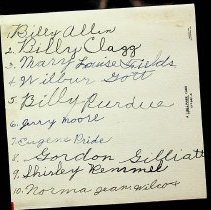 1. Billy Allin
2. Billy Clagg
3. Mary Louise Fields
4. Wilbur Gott
5. Billy Purdue
6. Jerry Moore
7. Eugene Pride
8. Gordon Gilliatt
9. Shirley Remmel
10. Norma Jean Wilcox